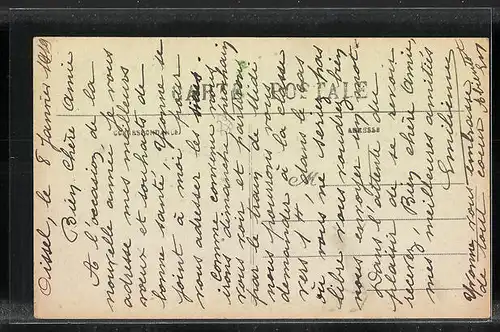 Oissel, le 8 Janvier 1919
Bien chère Amie
A l'occasion de la
nouvelle année je vous
adresse mes meilleurs
vœux et souhaits de
bonne santé. Yvonne se
joint à moi pour
vous adresser les siens.
Comme nous
irons dimanche prochain
vous voir et partirons
par le train de Midi
nous pourrons vous
demander à la classe
vers 1 h, dans le cas
où vous ne seriez pas
libre vous voudrez bien
nous envoyer un mot.
Dans l'attente du
plaisir de se revoir
recevez, Bien chère Amie,
mes meilleures amitiés
Emilienne
Yvonne vous embrasse
de tout cœur
CARTE POSTALE
CORRESPONDANCE
ADRESSE
M